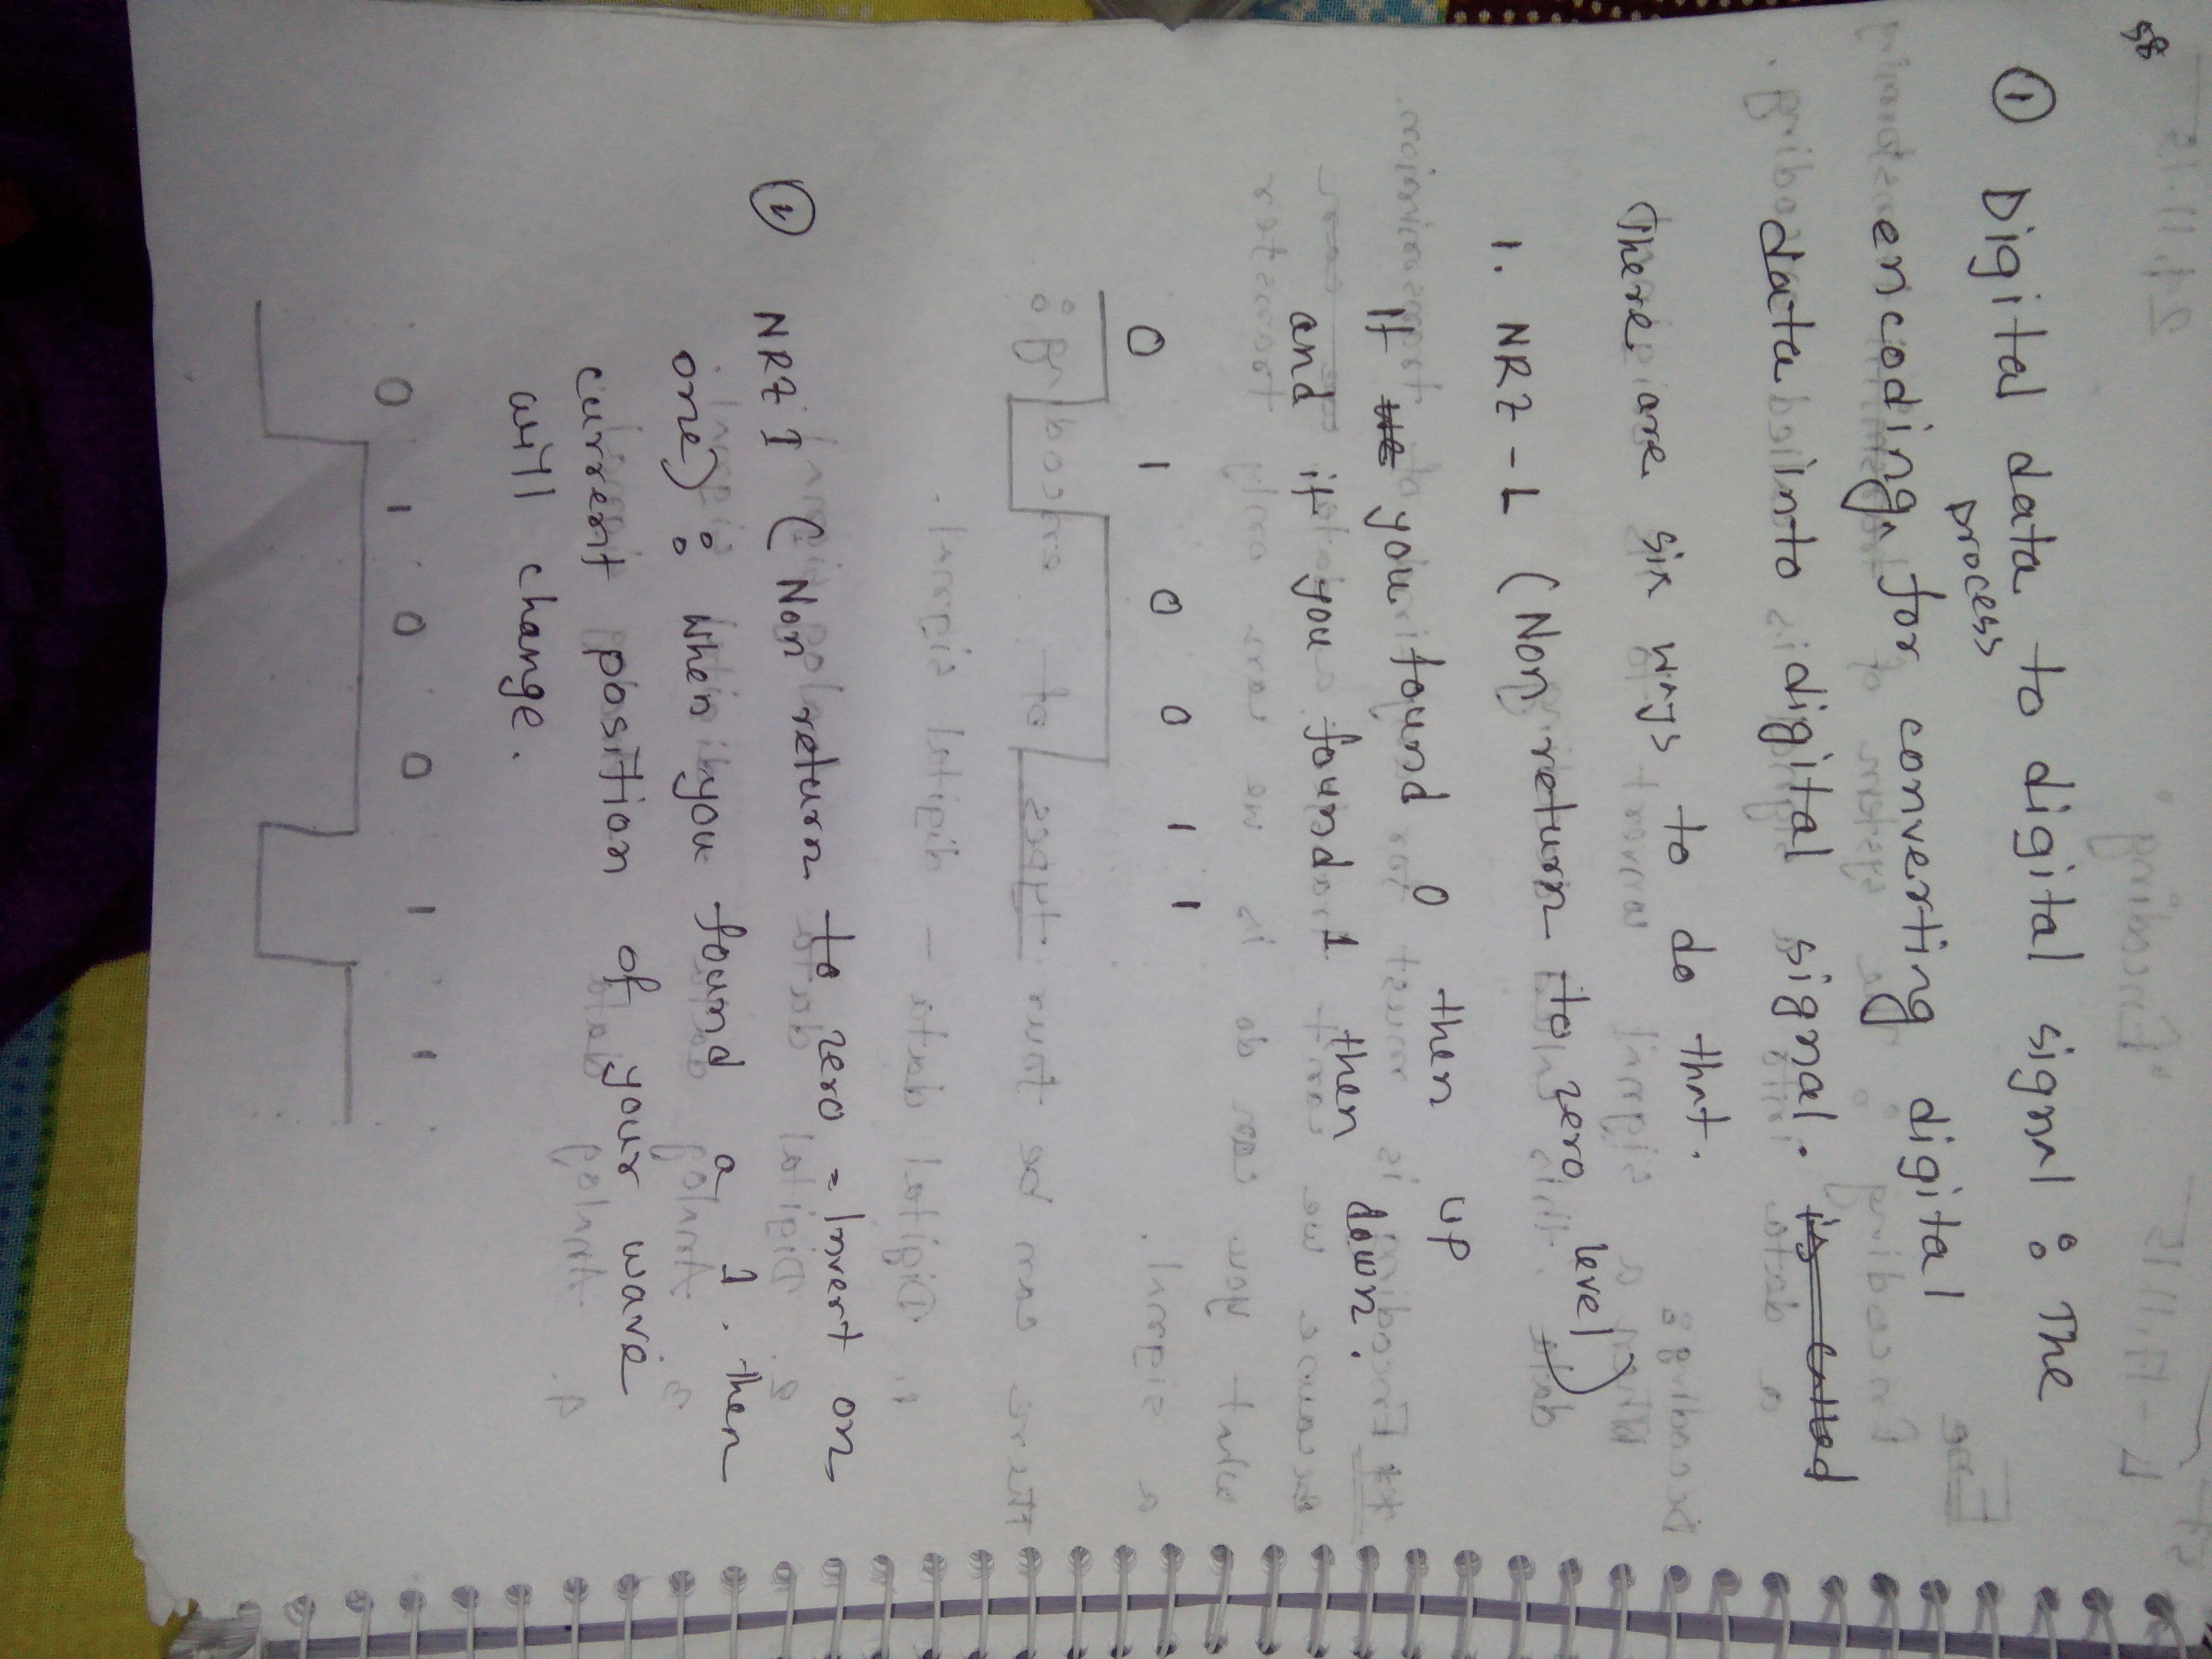 58
① Digital data to digital signal : The
process
encoding^ for converting digital
data into digital signal. is called
There are six ways to do that.
1. NRZ - L (Non return to zero level)
If we you found 0 then up
and if you found 1 then down.
0 1 0 0 1 1
② NRZ I (Non return to zero - Invert on
one) : When you found a 1. then
current position of your wave
will change.
0 1 0 0 1 1